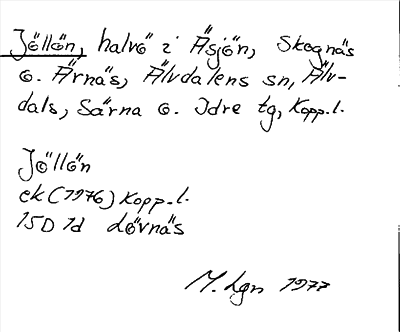 Jöllön, halvö i Åsjön, Skognäs
o. Årnäs, Älvdalens sn, Älv-
dals, Särna o. Idre tg, Kopp.l.
Jöllön
ek (1976) Kopp.l.
15D 1d Lövnäs
M. Lgn 1977